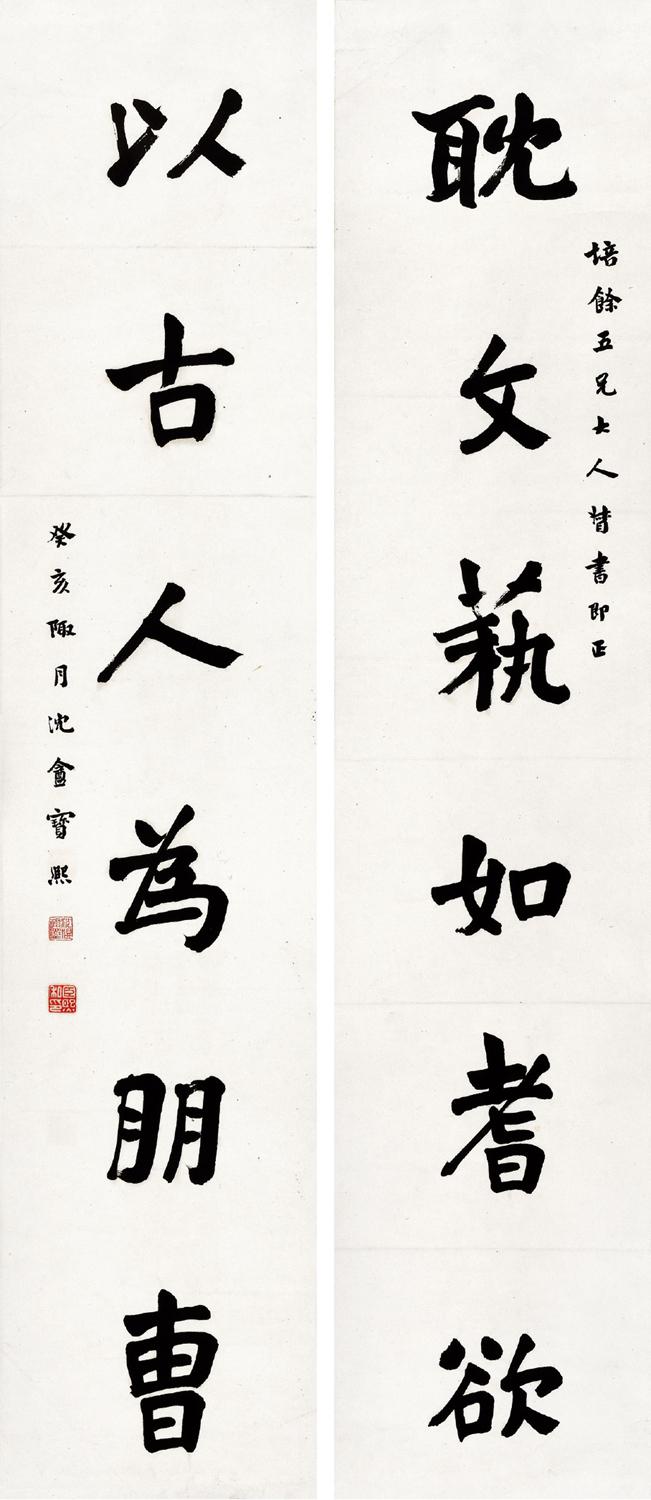 耽文蓺如耆欲
培餘五兄大人書即正
以古人為朋曹
癸亥陬月沈盦寶熙